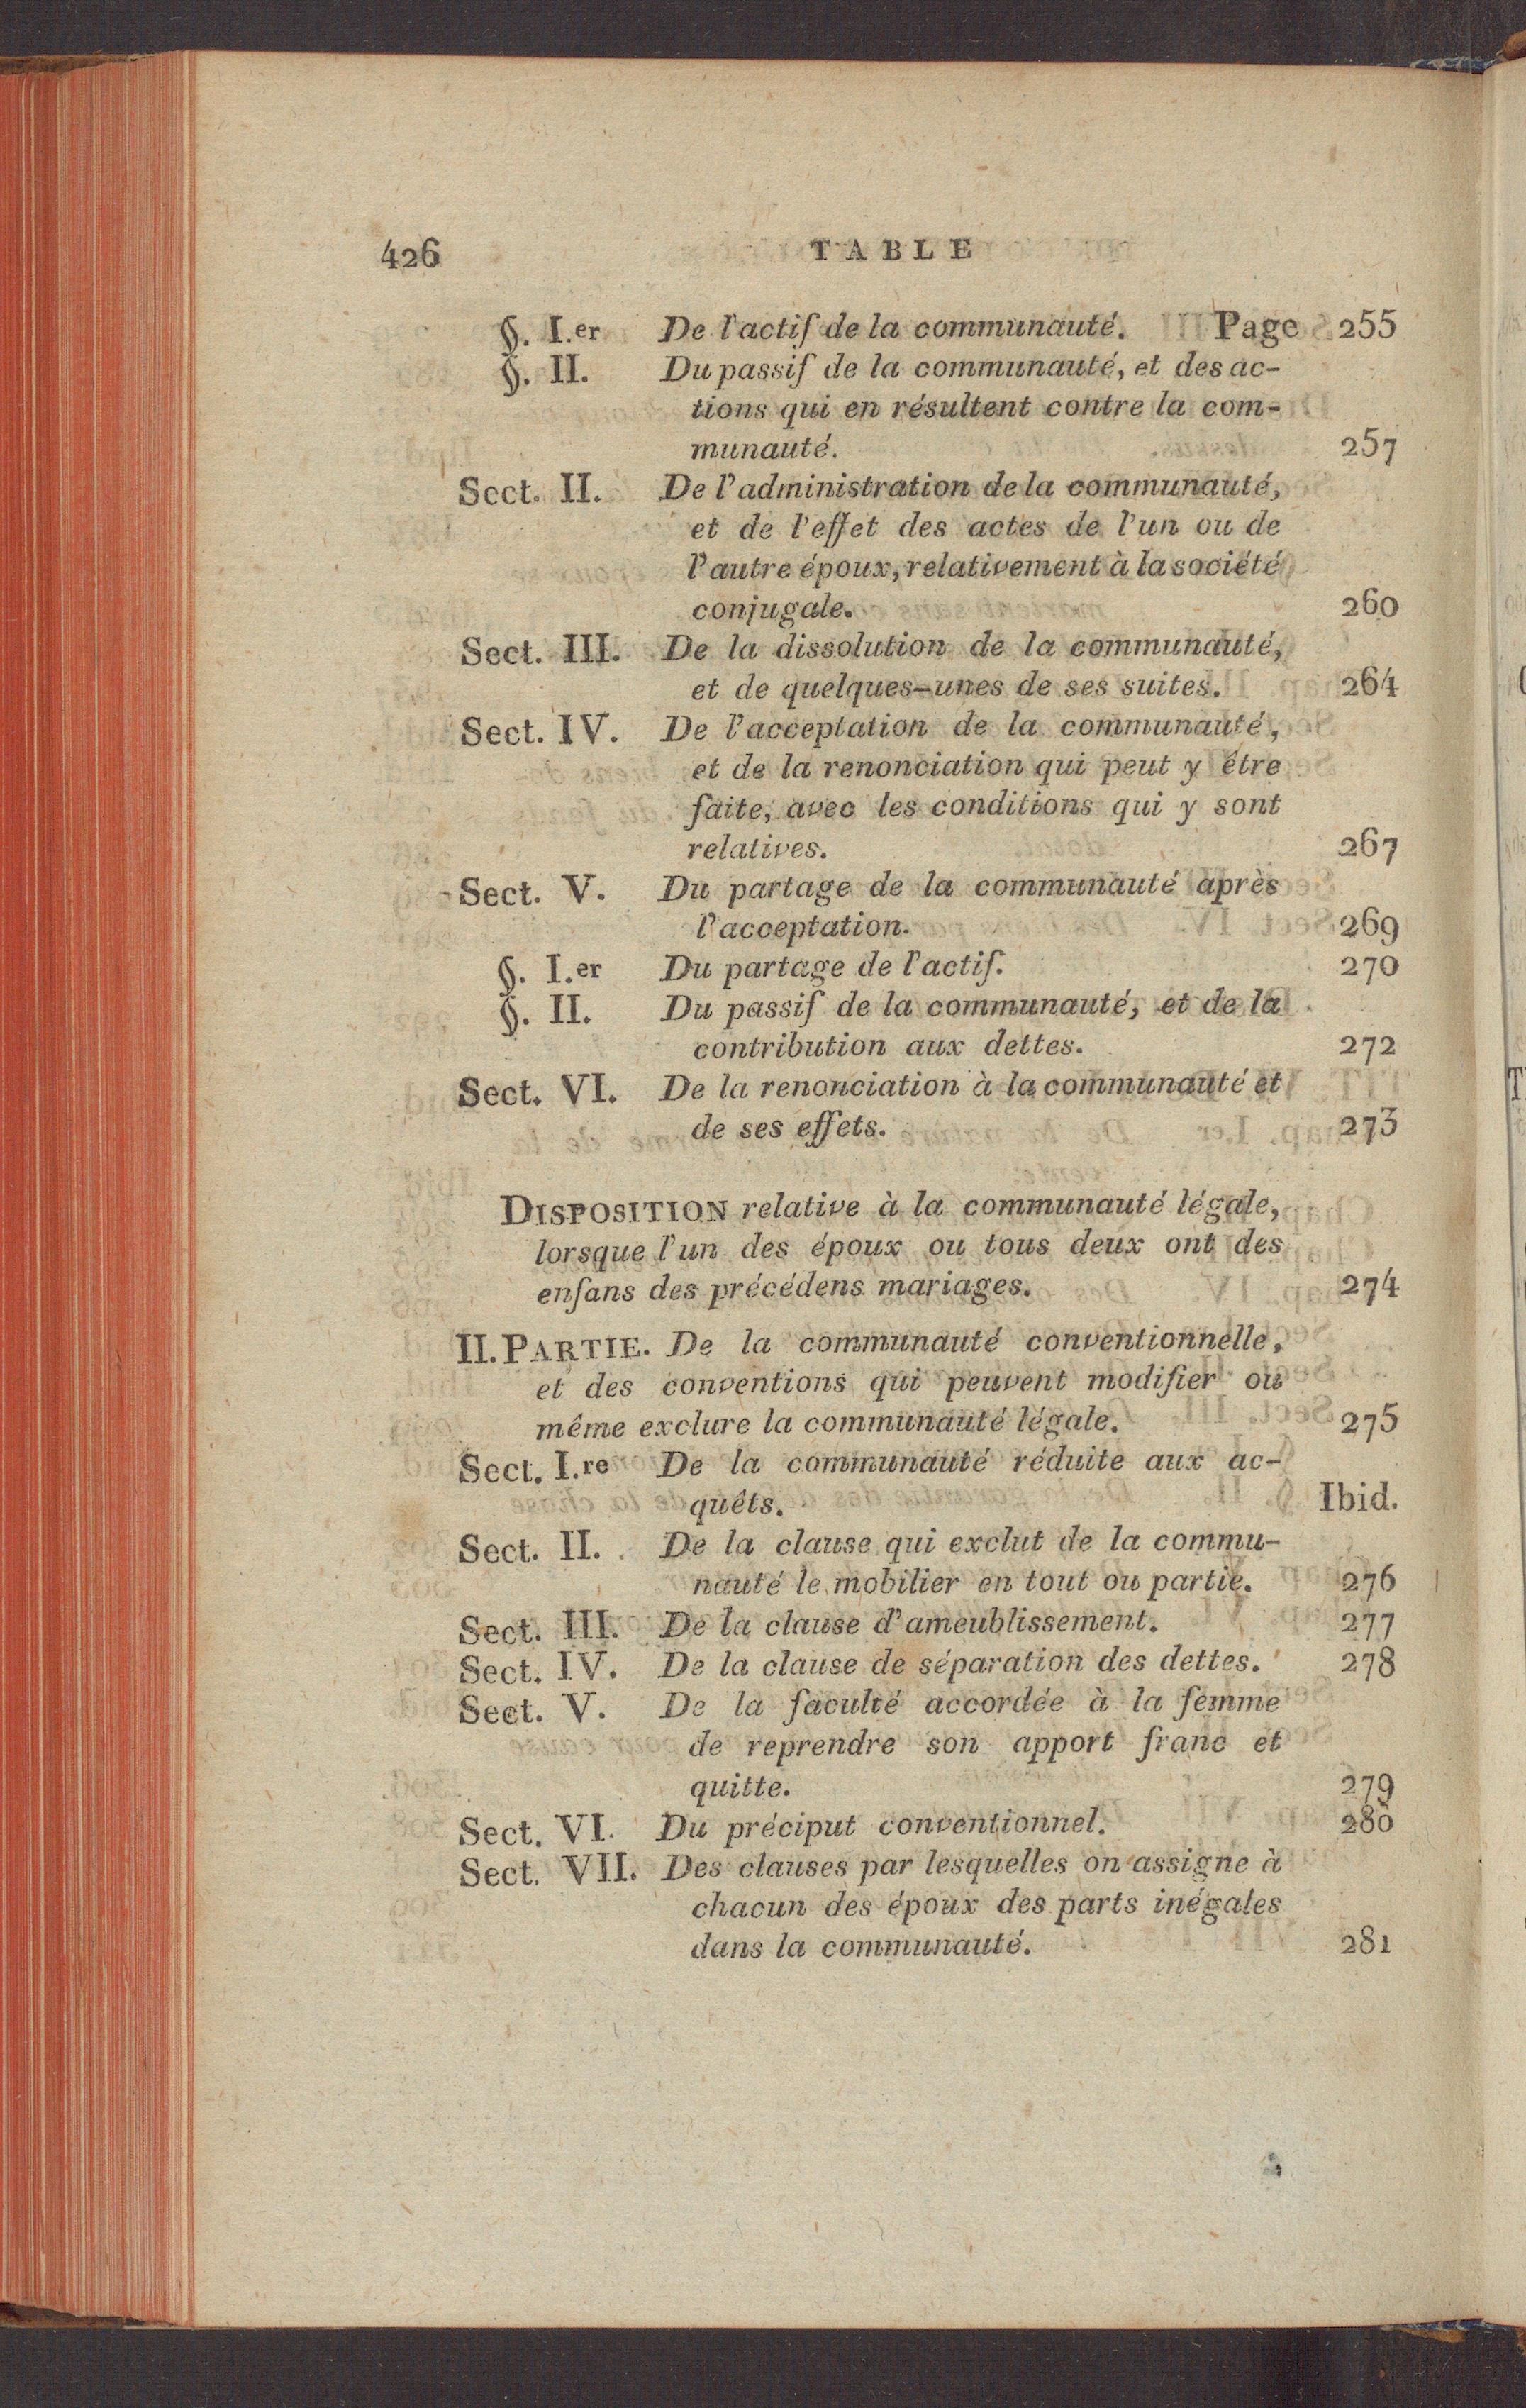 426 TABLE
§. I.er De l'actif de la communauté. Page 255
§. II. Du passif de la communauté, et des ac-
tions qui en résultent contre la com-
munauté. 257
Sect. II. De l'administration de la communauté,
et de l'effet des actes de l'un ou de
l'autre époux, relativement à la société
conjugale. 260
Sect. III. De la dissolution de la communauté,
et de quelques-unes de ses suites. 264
Sect. IV. De l'acceptation de la communauté,
et de la renonciation qui peut y être
faite, avec les conditions qui y sont
relatives. 267
Sect. V. Du partage de la communauté après
l'acceptation. 269
§. I.er Du partage de l'actif. 270
§. II. Du passif de la communauté, et de la
contribution aux dettes. 272
Sect. VI. De la renonciation à la communauté et
de ses effets. 273
DISPOSITION relative à la communauté légale,
lorsque l'un des époux ou tous deux ont des
enfans des précédens mariages. 274
II. PARTIE. De la communauté conventionnelle,
et des conventions qui peuvent modifier ou
même exclure la communauté légale. 275
Sect. I.re De la communauté réduite aux ac-
quêts. Ibid.
Sect. II. De la clause qui exclut de la commu-
nauté le mobilier en tout ou partie. 276
Sect. III. De la clause d'ameublissement. 277
Sect. IV. De la clause de séparation des dettes. 278
Sect. V. De la faculté accordée à la femme
de reprendre son apport franc et
quitte. 279
Sect. VI. Du préciput conventionnel. 280
Sect. VII. Des clauses par lesquelles on assigne à
chacun des époux des parts inégales
dans la communauté. 281